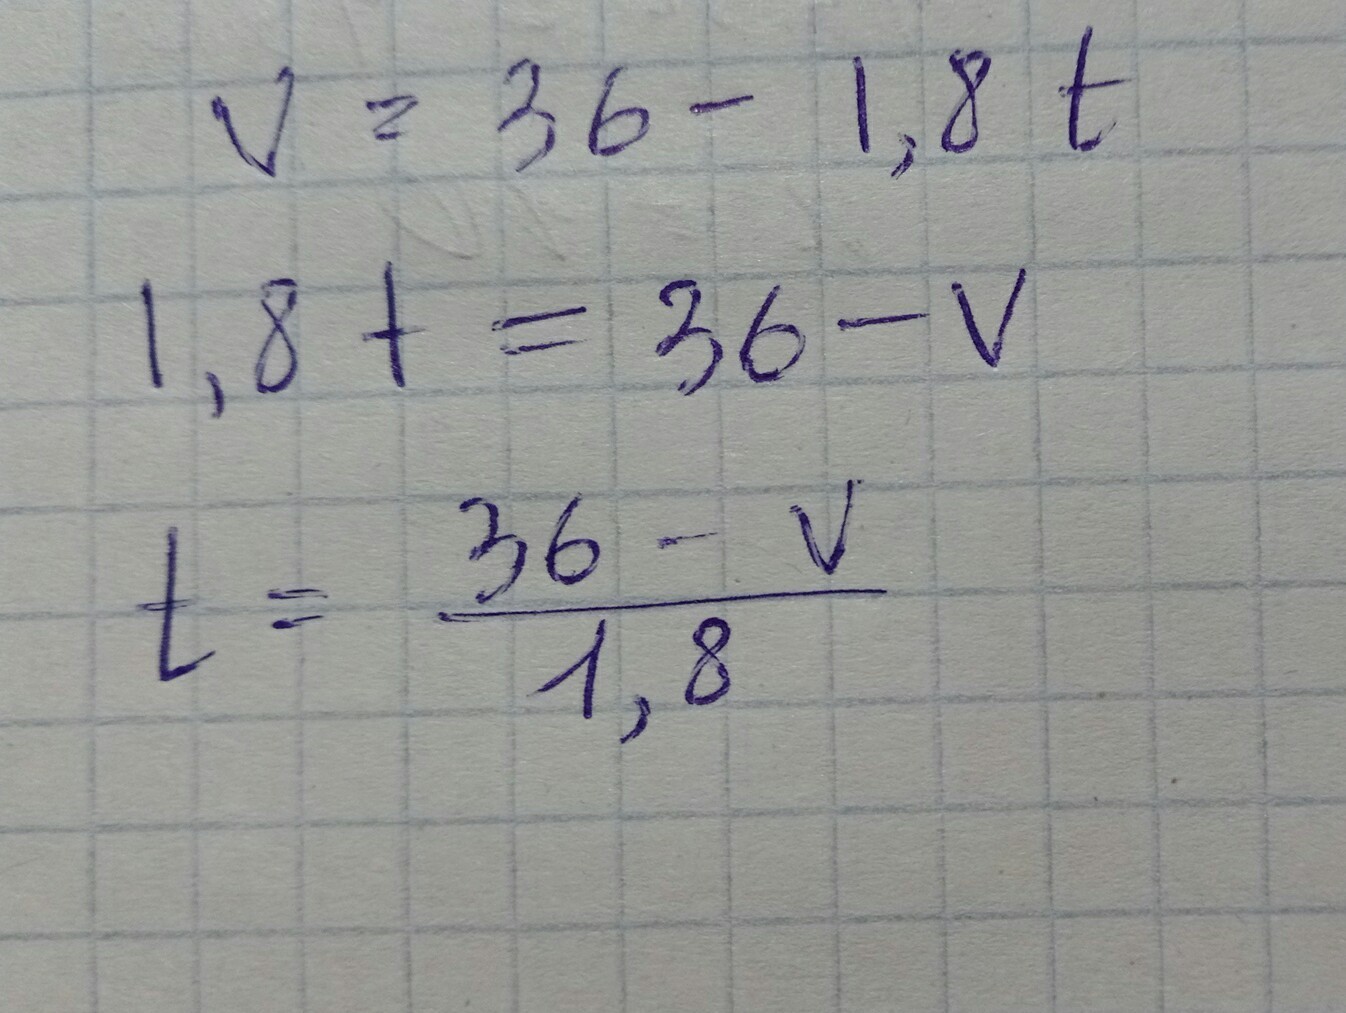 V = 36 - 1,8 t
1,8 t = 36 - V
t = \frac{36 - V}{1,8}